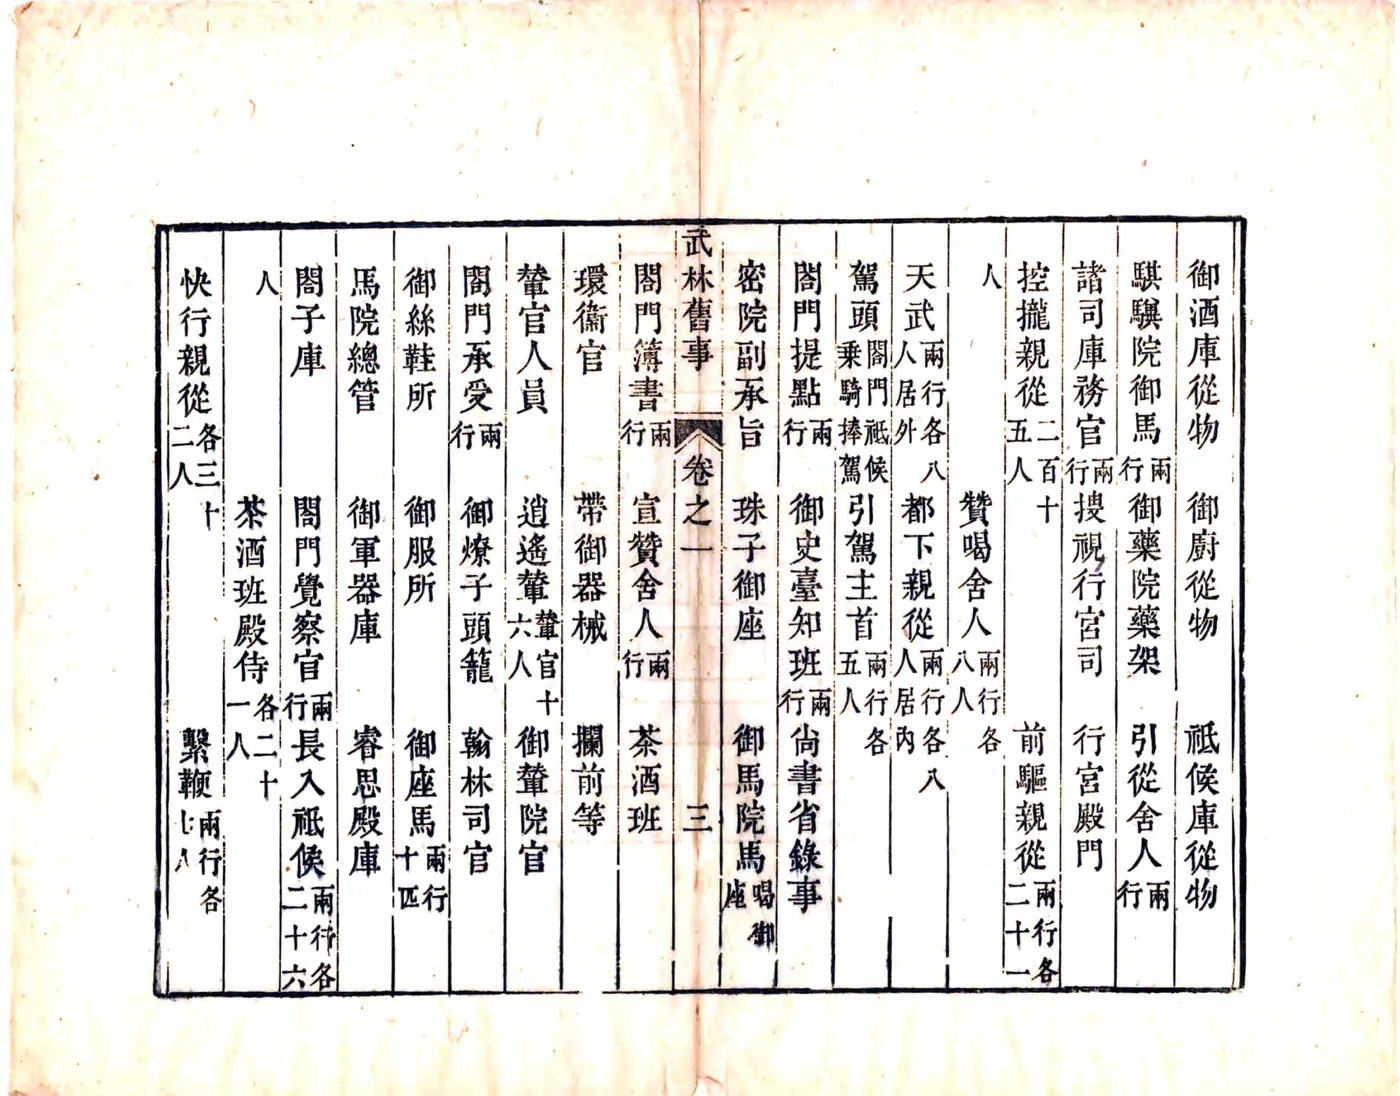 御酒庫從物 御廚從物 祗候庫從物
騏驥院御馬兩行 御藥院藥架 引從舍人兩行
諸司庫務官兩行 搜視行宮司 行宮殿門
控攏親從二百十五人 前驅親從兩行各二十一
人 贊喝舍人兩行各八人
天武兩行各八人居外 都下親從兩行各八人居內
駕頭閤門祗候乘騎捧駕 引駕主首兩行各五人
閤門提點兩行 御史臺知班兩行 尚書省錄事
密院副承旨 珠子御座 御馬院馬喝御座
武林舊事 卷之一 三
閤門簿書兩行 宣贊舍人兩行 茶酒班
環衞官 帶御器械 攔前等
輦官人員 逍遙輦輦官十六人 御輦院官
閤門承受兩行 御燎子頭籠 翰林司官
御絲鞋所 御服所 御座馬兩行十匹
馬院總管 御軍器庫 睿思殿庫
閤子庫 閤門覺察官兩行 長入祗候兩行各二十六
人 茶酒班殿侍各二十一人
快行親從各三十二人 繫鞭兩行各七人